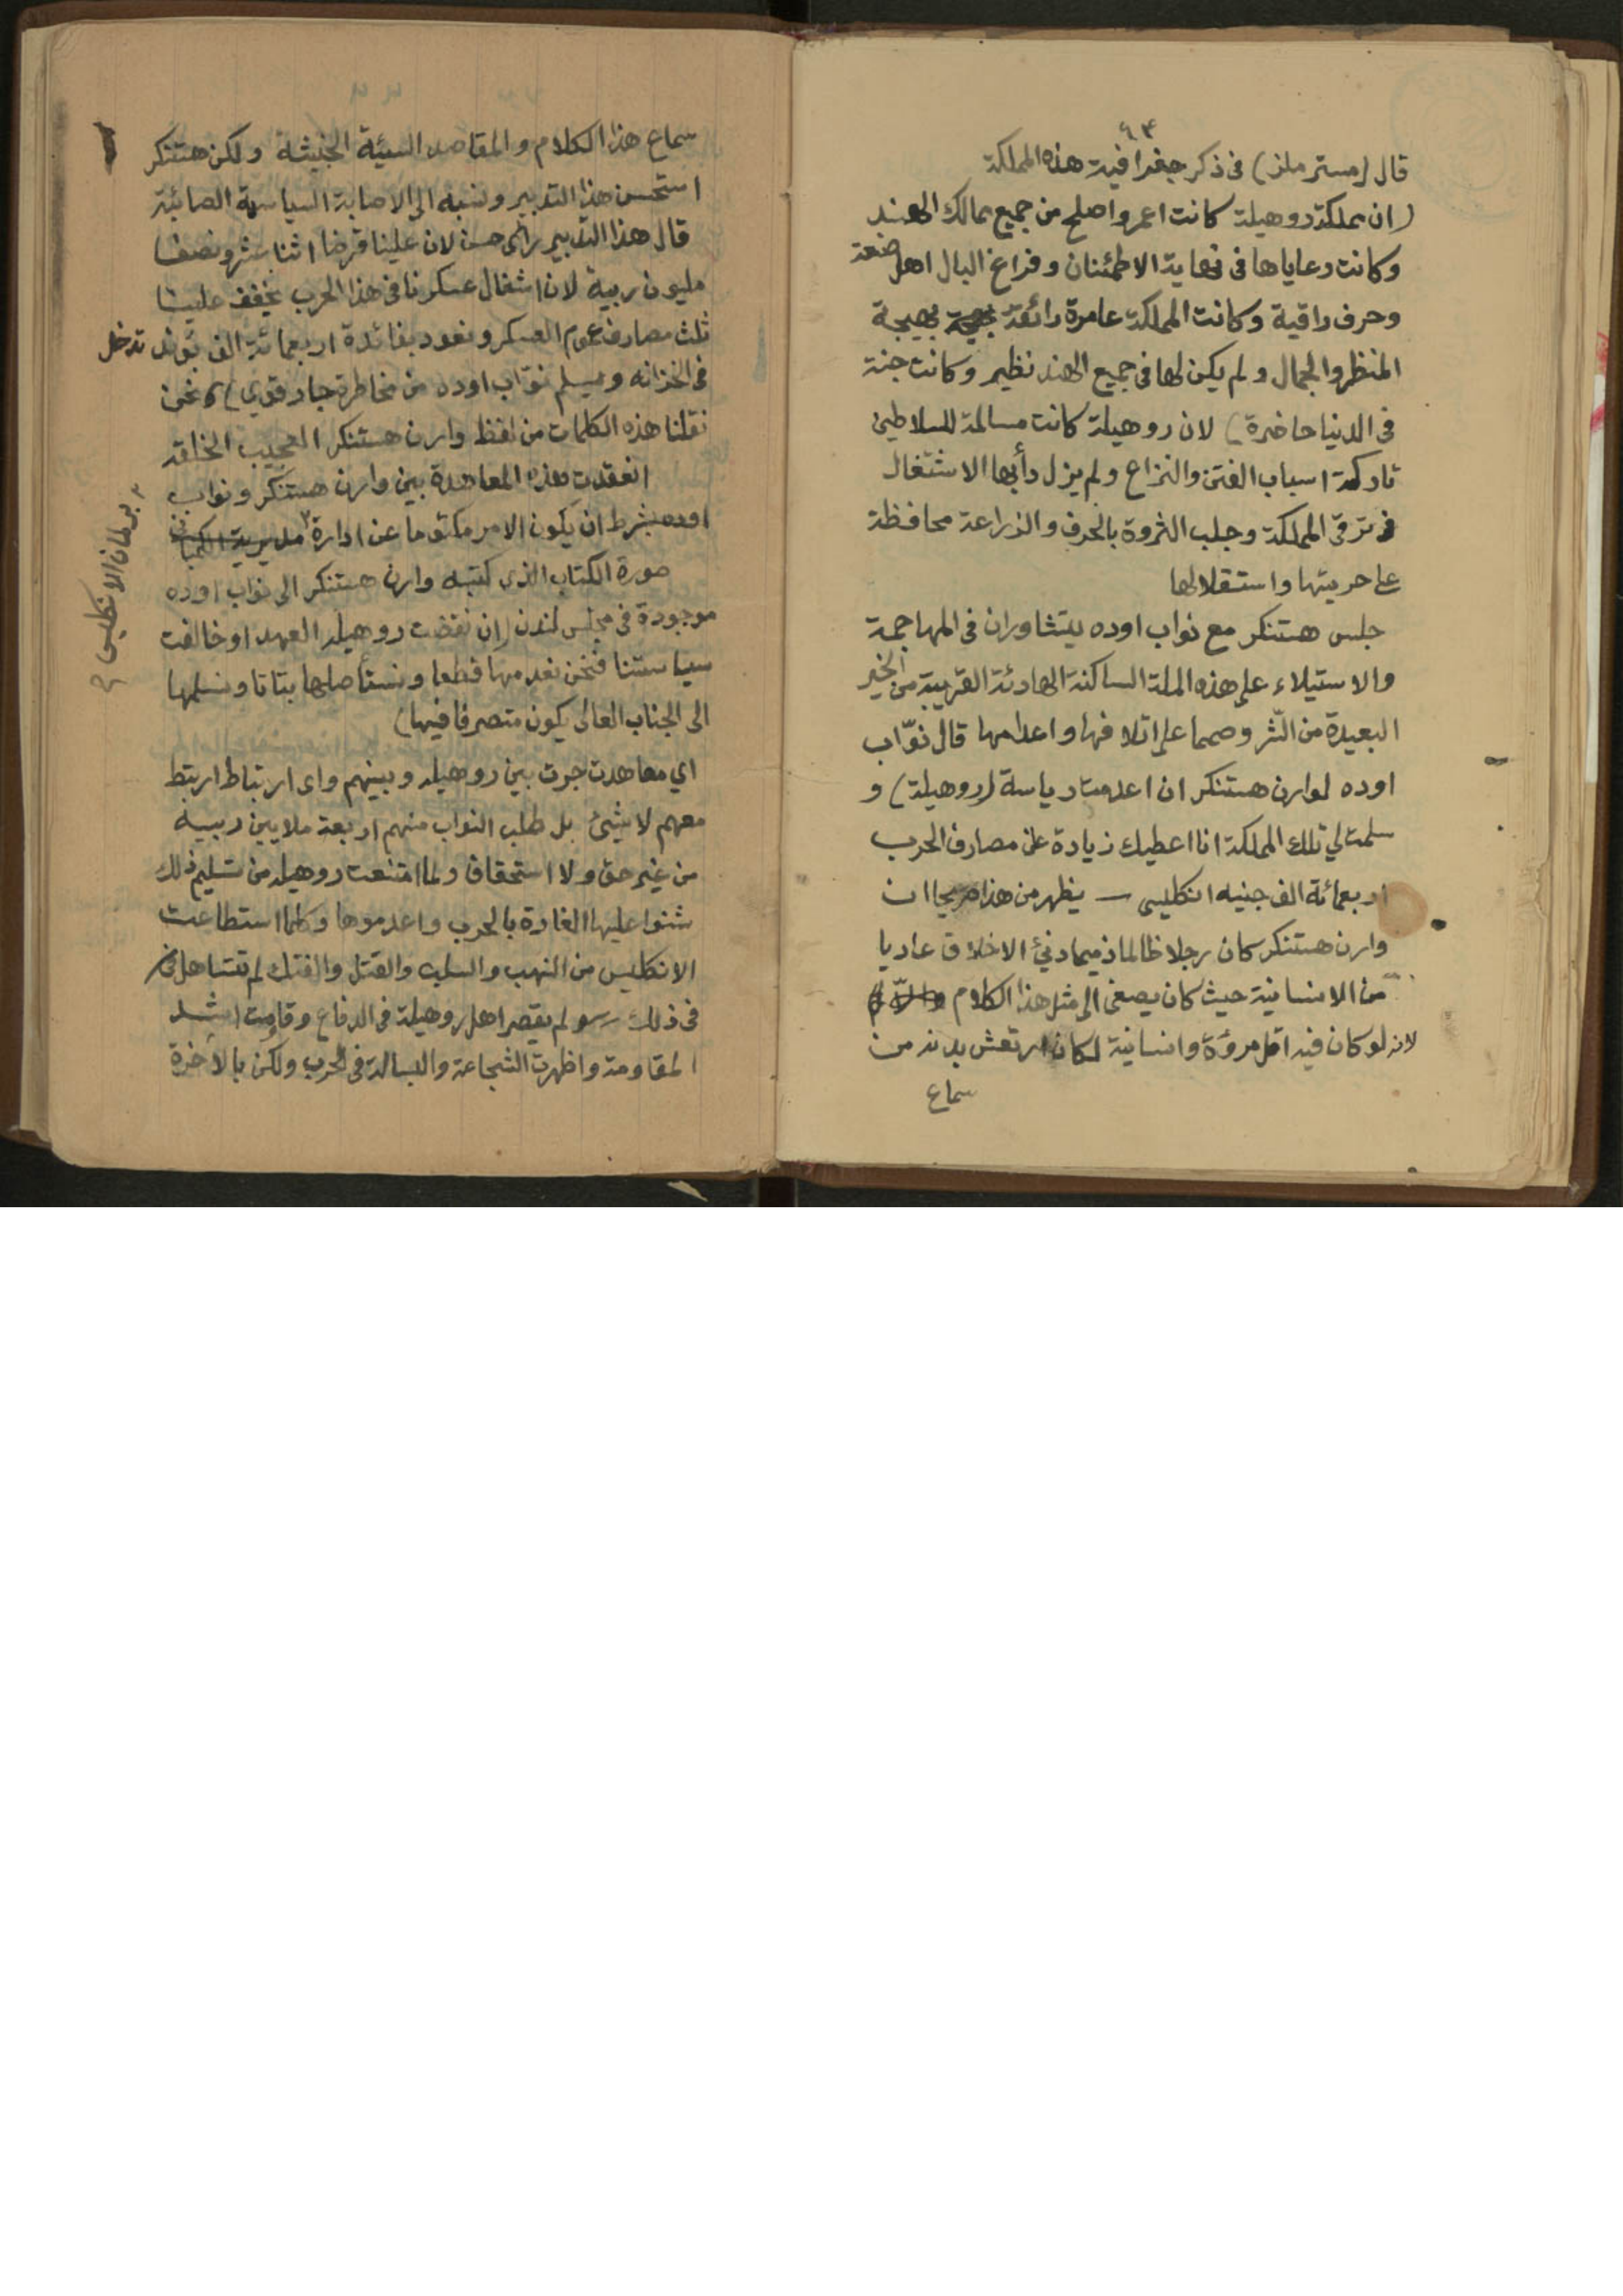 ٦٣
قال (مستر ملز) فى ذكر جغرافية هذه المملكة
(ان مملكة روهيلة كانت اعمر واصلح من جميع ممالك الهند
وكانت رعاياها فى نهاية الاطمئنان وفراغ البال اهل صنعة
وحرف راقية وكانت المملكة عامرة رائقة بهيجة
المنظر والجمال ولم يكن لها فى جميع الهند نظير وكانت جنة
فى الدنيا حاضرة) لان روهيلة كانت مسالمة للسلاطين
تاركة اسباب الفتن والنزاع ولم يزل دأبها الاشتغال
فى ترقى المملكة وجلب الثروة بالحرف والزراعة محافظة
على حريتها واستقلالها
جلس هستنكر مع نواب اوده يتشاوران فى المهاجمة
والاستيلاء على هذه الملة الساكنة الهادئة القريبة من الخير
البعيدة من الشر وصمما على اتلافها واعدامها قال نوّاب
اوده لوارن هستنكر ان اعدمت رياسة (روهيلة) و
سلمت لي تلك المملكة انا اعطيك زيادة على مصارف الحرب
اربعمائة الف جنيه انكليسى — يظهر من هذا صريحا ان
وارن هستنكر كان رجلا ظالما ذميما دنئ الاخلاق عاديا
من الانسانية حيث كان يصغى الى مثل هذا الكلام
لانه لو كان فيه اقل مروّة وانسانية لكان ارتعش بدنه من
سماع
سماع هذا الكلام والمقاصد السيئة الخبيثة ولكن هستنكر
استحسن هذا التدبير ونسبه الى الاصابة السياسية الصائبة
قال هذا التدبير رائى حسن لان علينا قرضا اثنا عشر ونصفا
مليون ربية لان اشغال عسكرنا فى هذا الحرب يخفف علينا
ثلث مصارف عموم العسكر ونعود بفائدة اربعمائة الف پوند تدخل
فى الخزانه ويسلم نوّاب اوده من مخاطرة جار قوي) نحن
نقلنا هذه الكلمات من لفظ وارن هستنكر العجيب الخلقة
انعقدت هذه المعاهدة بين وارن هستنكر ونواب
اوده بشرط ان يكون الامر مكتوما عن ادارة مديرية الكمپانى
٢ برلمان الانكليسى
صورة الكتاب الذى كتبه وارن هستنكر الى نواب اوده
موجودة فى مجلس لندن (ان نقضت روهيله العهد او خالفت
سياستنا فنحن نعدمها قطعا ونستأصلها بتاتا ونسلمها
الى الجناب العالى يكون متصرفا فيها)
اي معاهدت جرت بين روهيله وبينهم واى ارتباط ارتبط
معهم لا شيئ بل طلب النواب منهم اربعة ملايين ربية
من غير حق ولا استحقاق ولما امتنعت روهيله من تسليم ذلك
شنوا عليها الغارة بالحرب واعدموها وكلما استطاعت
الانكليس من النهب والسلب والقتل والفتك لم تتساهل
فى ذلك ولم يقصر اهل روهيلة فى الدفاع وقاومت اشد
المقاومة واظهرت الشجاعة والبسالة فى الحرب ولكن بالأخرة